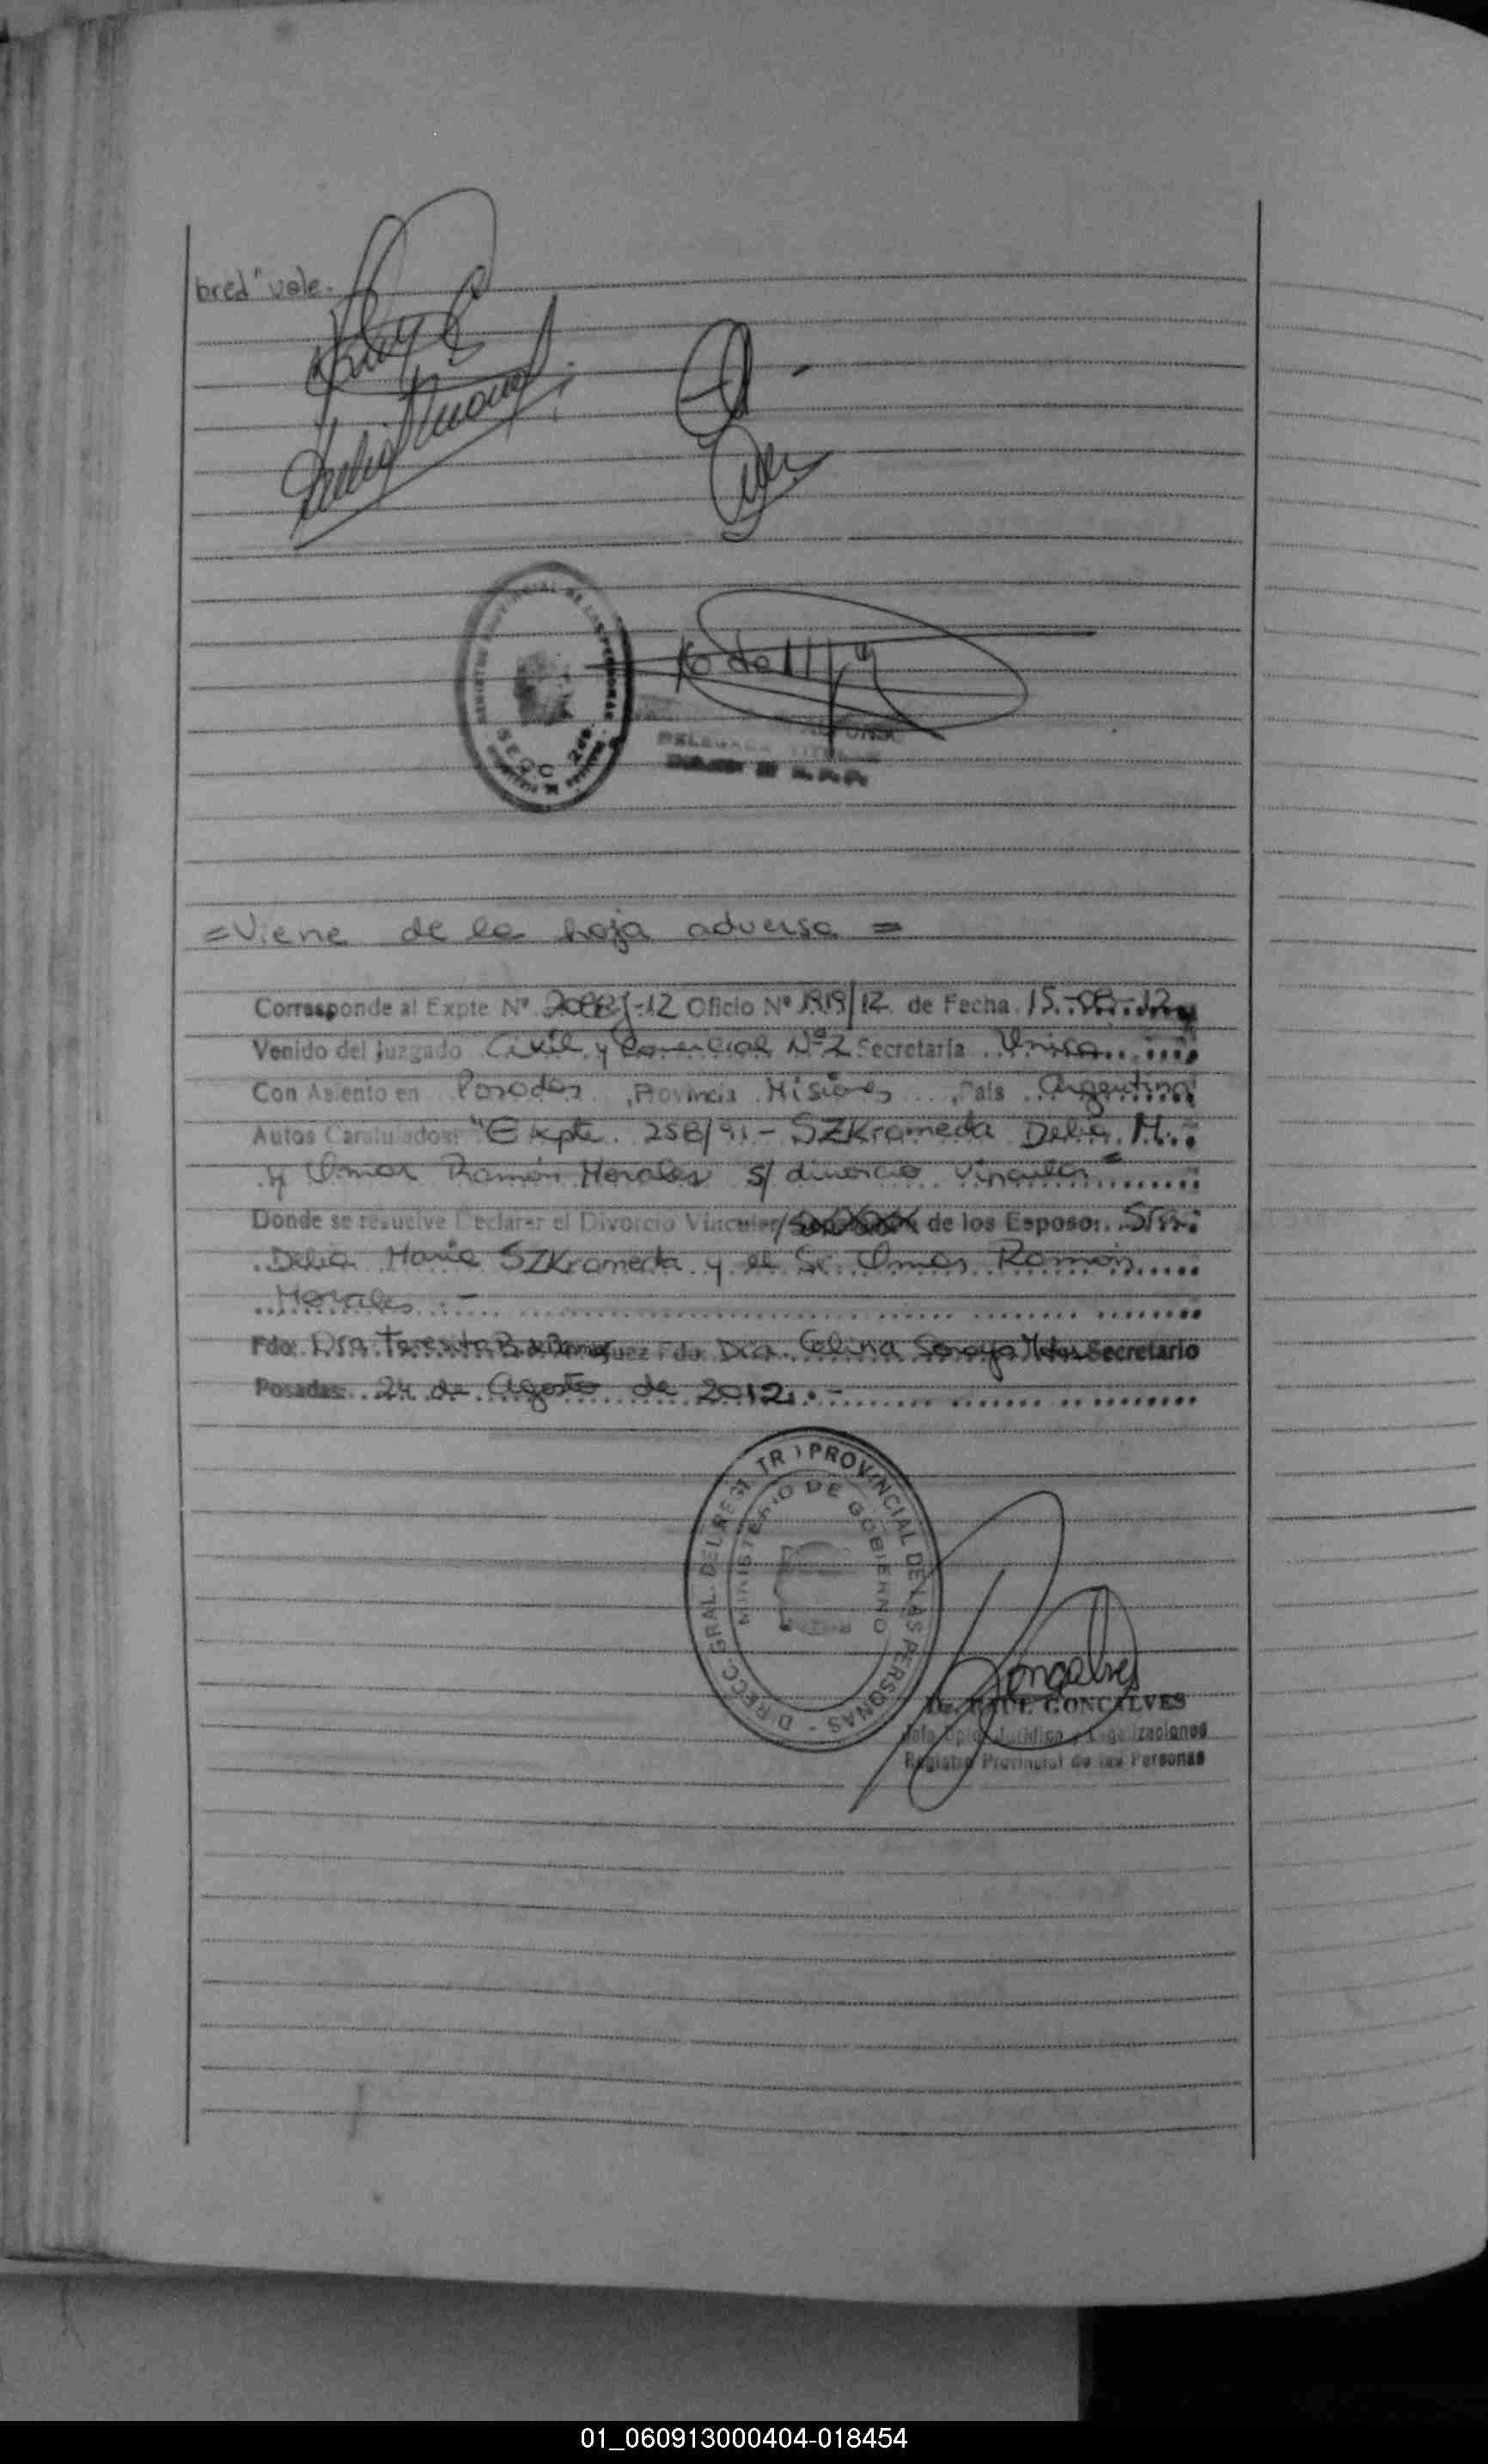 bred" vale.-
REGISTRO PROVINCIAL DE LAS PERSONAS
SECC 2da.
DELEGADA TITULAR
=Viene de la hoja adversa =
Corresponde al Expte Nº 1919/12 de Fecha 15.-08.-12
Venido del Juzgado Civil y Comercial Nº 2 Secretaría Unica
Con Asiento en Posadas, Provincia Misiones, País Argentina
Autos Caratulados: "Expte. 258/91 - SZKrameda Delia M.
y Omar Ramón Morales s/ divorcio vincular"
Donde se resuelve Declarar el Divorcio Vincular/ de los Esposos: Sra.
Delia María SZKrameda y el Sr. Omar Ramón
Morales.-
Fdo: Dra. Teresita B. de Fdo: Dra. Celina Soraya Secretario
Posadas: 24 de Agosto de 2012.-
DIRECC. GRAL. DEL REGISTRO PROVINCIAL DE LAS PERSONAS -
MINISTERIO DE GOBIERNO
Goncalves
Dr. RAUL GONCALVES
Jefe Dpto. Jurídico y Legalizaciones
Registro Provincial de las Personas
01_060913000404-018454